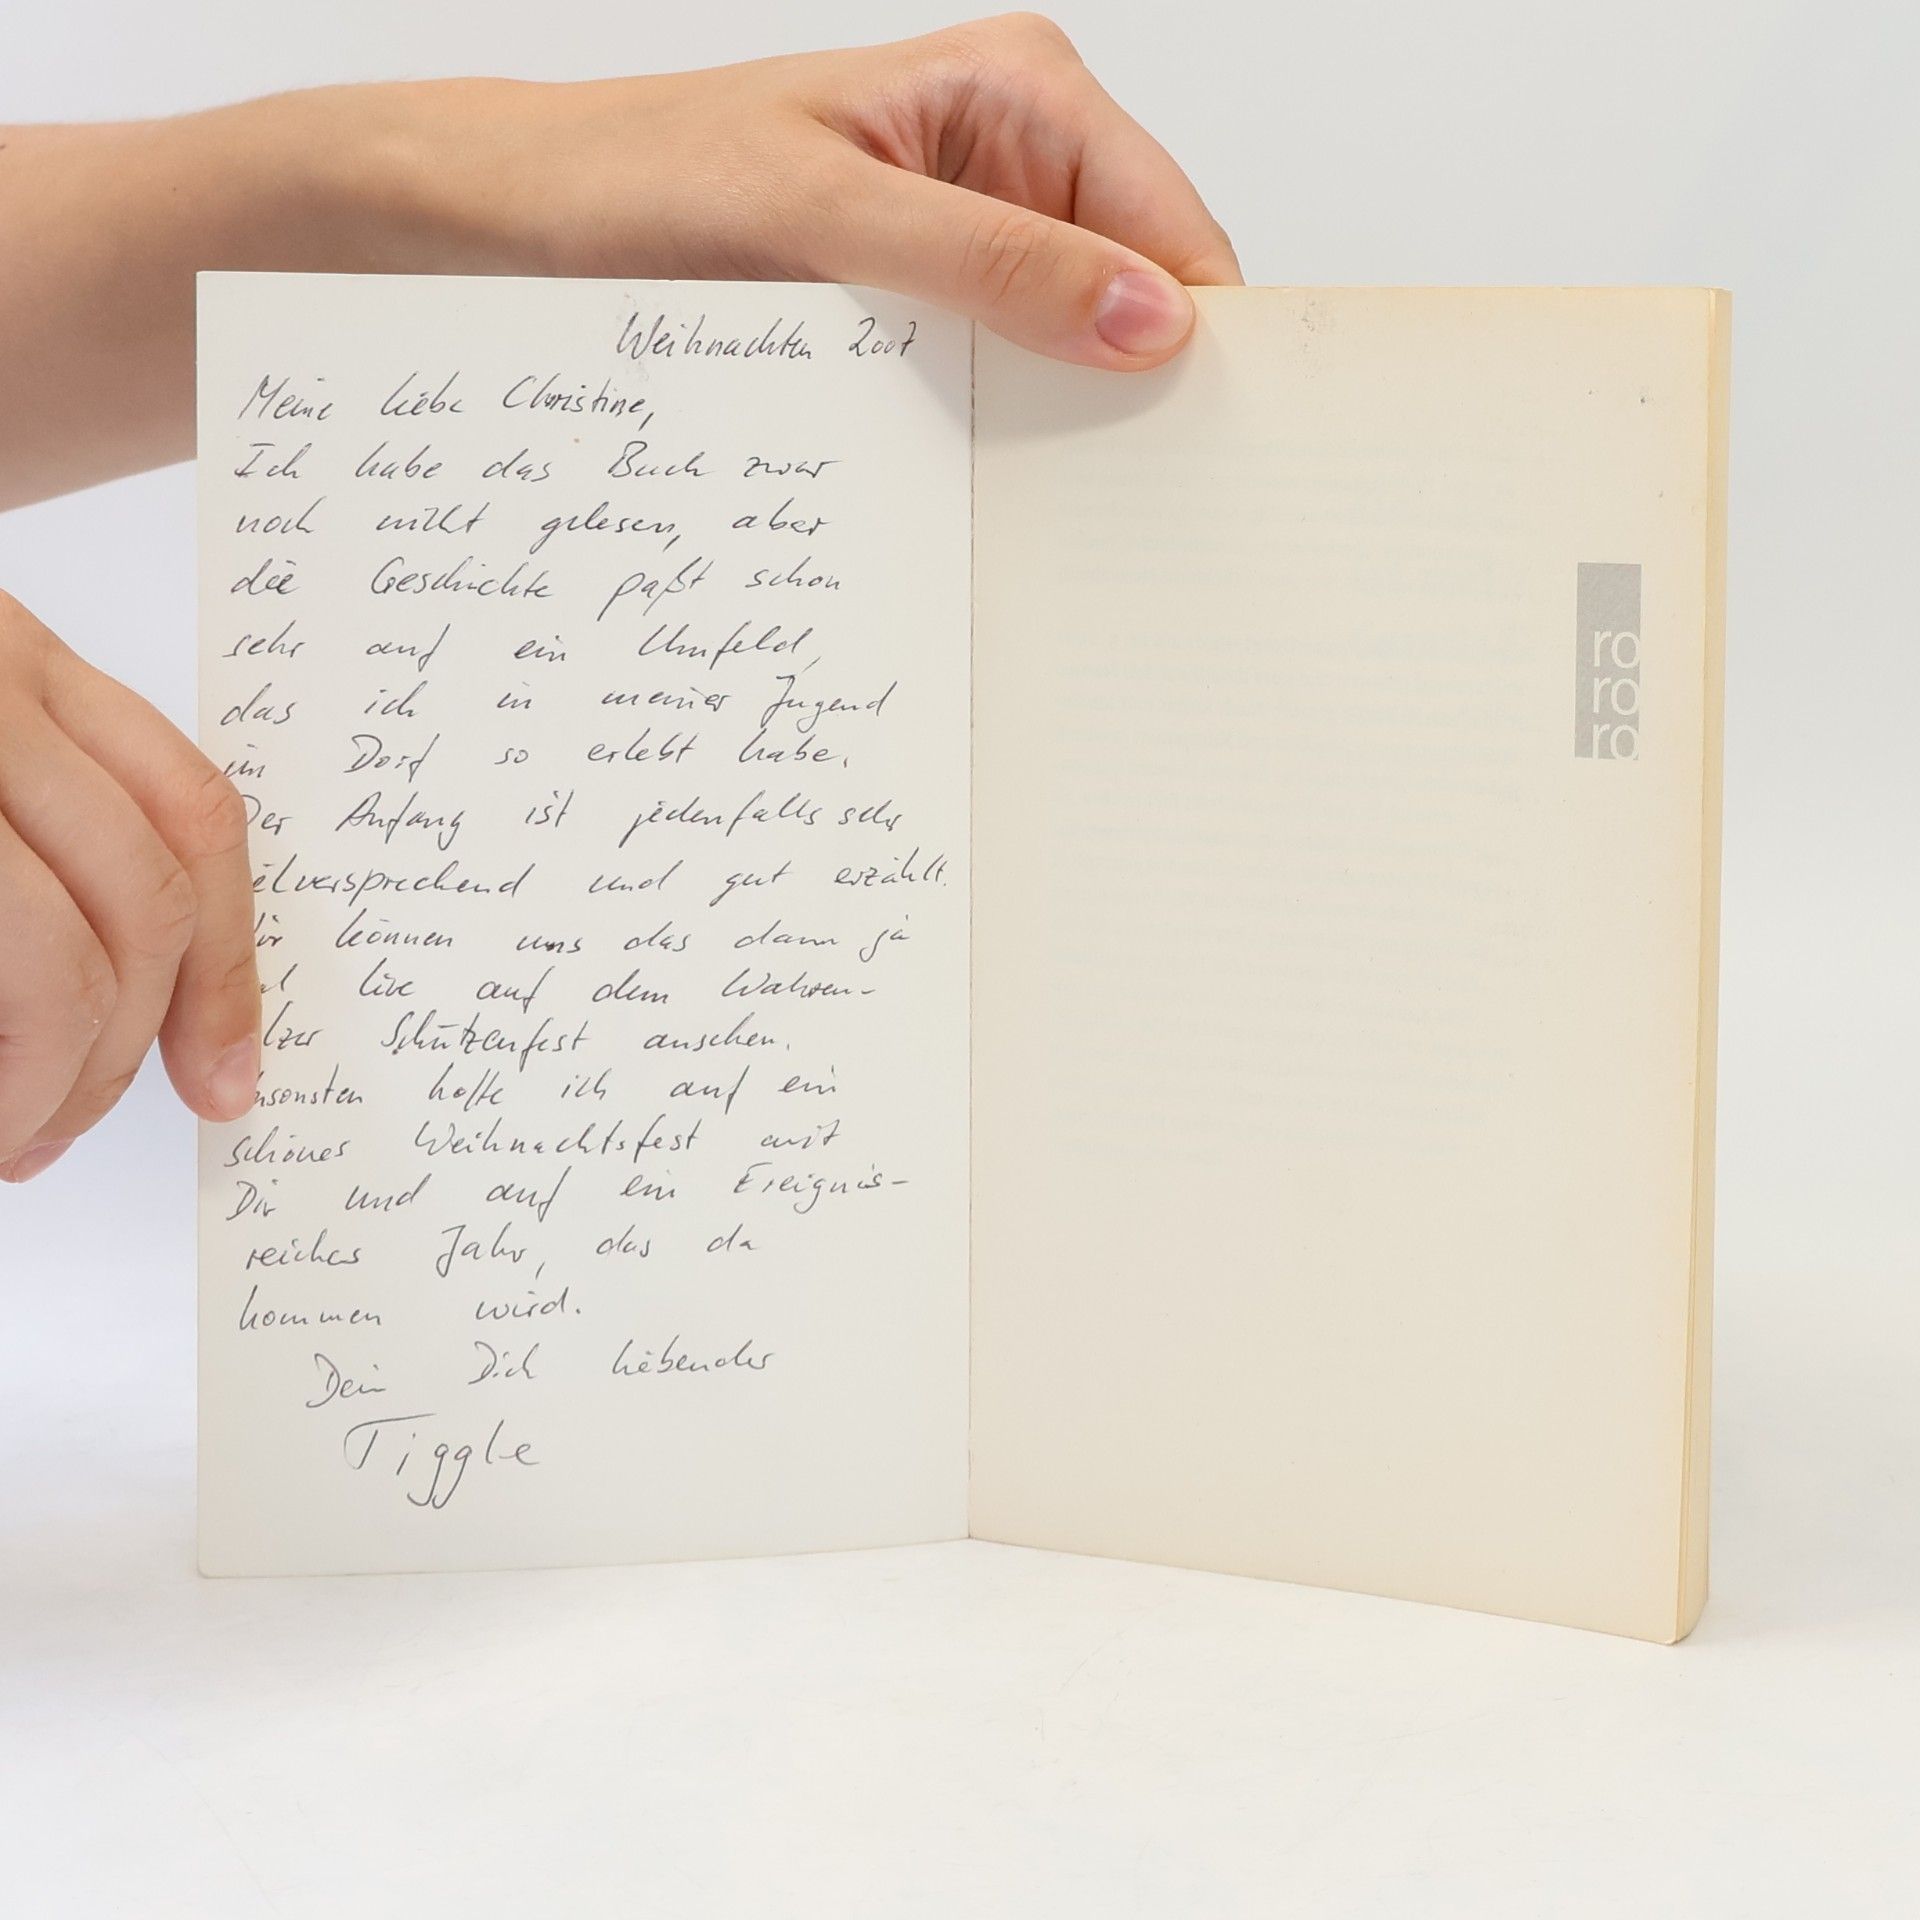 Weihnachten 2007
Meine liebe Christine,
Ich habe das Buch zwar
noch nicht gelesen, aber
die Geschichte paßt schon
sehr auf ein Umfeld,
das ich in meiner Jugend
im Dorf so erlebt habe.
Der Anfang ist jedenfalls sehr
ielversprechend und gut erzählt.
ir können uns das dann ja
al live auf dem Wahren-
lzer Schützenfest ansehen.
nsonsten hoffe ich auf ein
schönes Weihnachtsfest mit
Dir und auf ein Ereignis-
reiches Jahr, das da
kommen wird.
Dein Dich liebender
Tiggle
ro
ro
ro